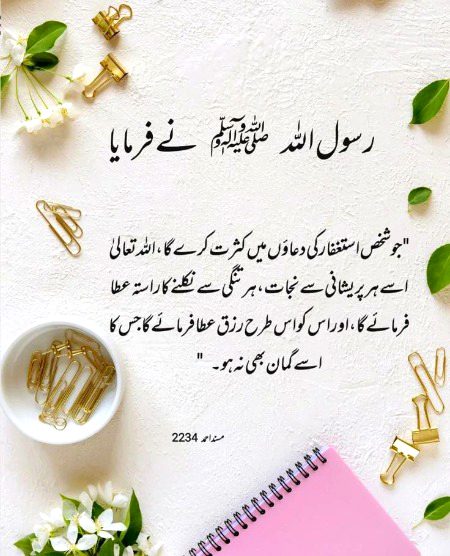 رسول اللہ ﷺ نے فرمایا
"جو شخص استغفار کی دعاؤں میں کثرت کرے گا، اللہ تعالیٰ
اسے ہر پریشانی سے نجات، ہر تنگی سے نکلنے کا راستہ عطا
فرمائے گا، اور اس کو اس طرح رزق عطا فرمائے گا جس کا
اسے گمان بھی نہ ہو۔ "
مسند احمد 2234